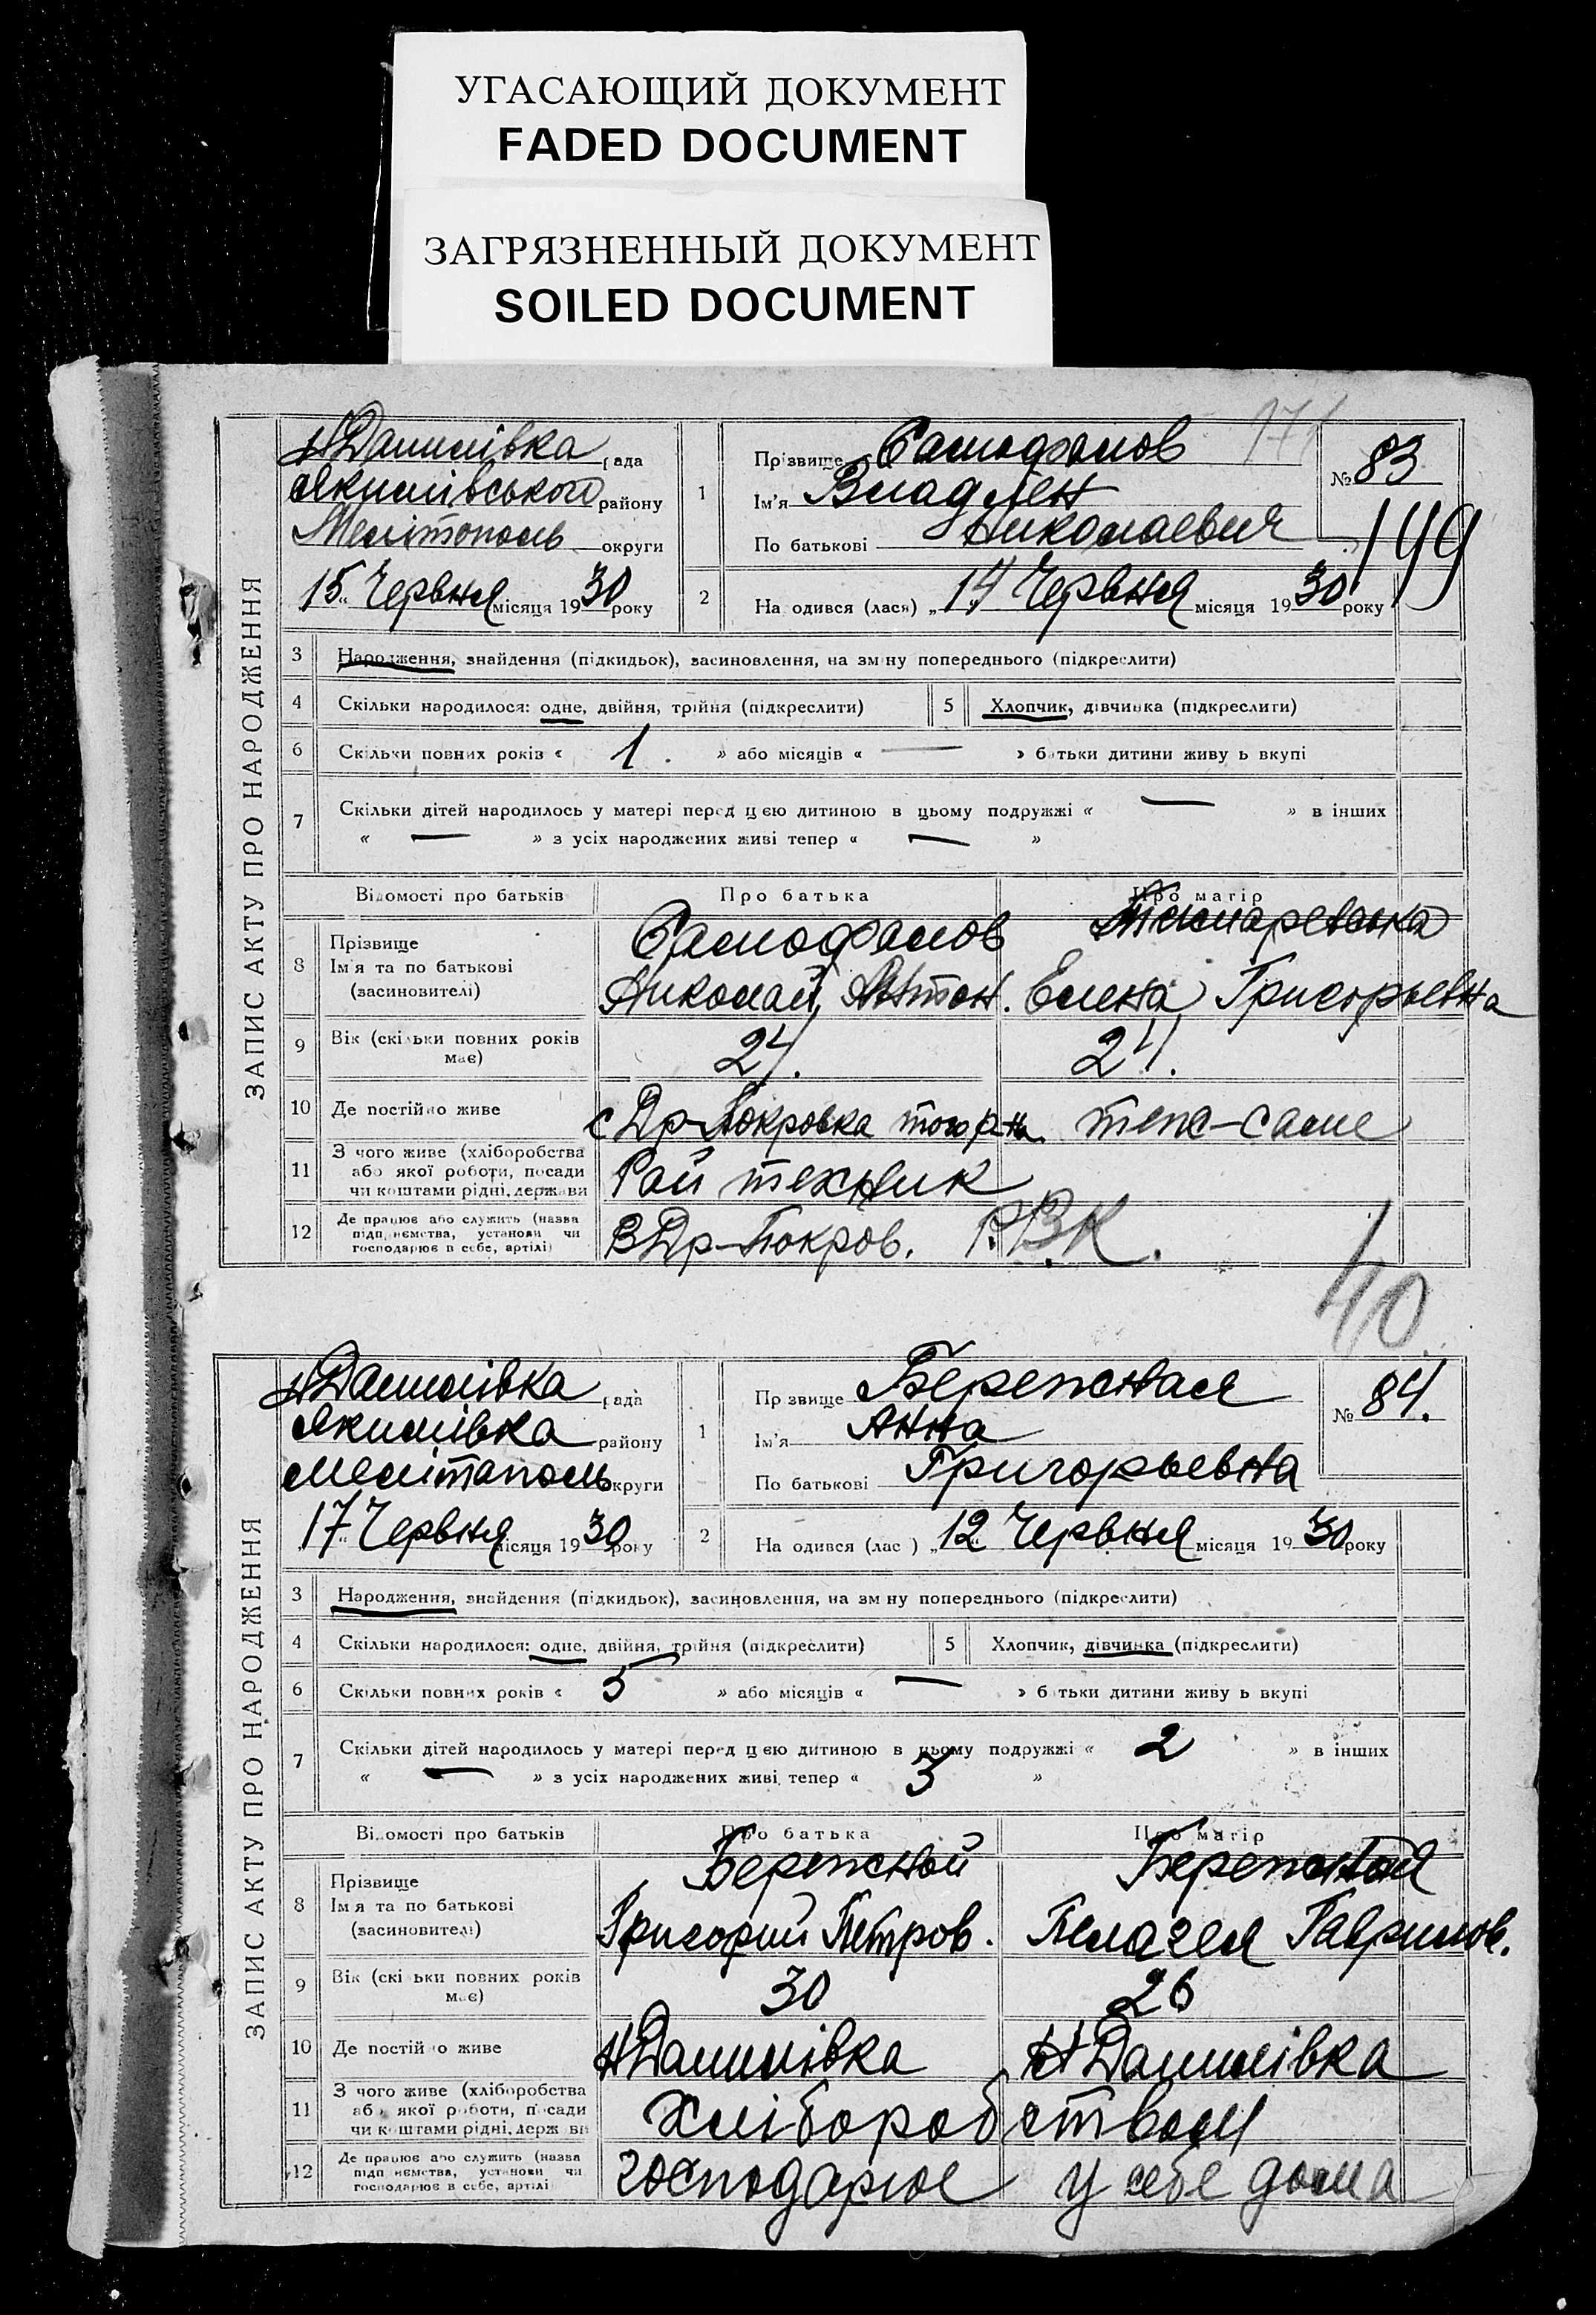 УГАСАЮЩИЙ ДОКУМЕНТ
FADED DOCUMENT
ЗАГРЯЗНЕННЫЙ ДОКУМЕНТ
SOILED DOCUMENT
ЗАПИС АКТУ ПРО НАРОДЖЕННЯ
Н Данилівка рада
Якимівського району
Мелітополь округи
15 Червня місяця 1930 року
171
1 Прізвище Самофалов
Ім'я Владлен
По батькові Николаевич
№ 83
149
2 На одився (лася) „14 Червня місяця 1930 року
3 Народження, знайдення (підкидьок), засиновлення, на зм ну попереднього (підкреслити)
4 Скільки народилося: одне, двійня, трійня (підкреслити) 5 Хлопчик, дівчинка (підкреслити)
6 Скільки повних років « 1. » або місяців « — » б тьки дитини живу ь вкупі
7 Скільки дітей народилось у матері перед цією дитиною в цьому подружжі « — » в інших
« — » з усіх народжених живі тепер « — »
Відомості про батьків Про батька Про матір
8 Прізвище
Ім'я та по батькові
(засновителі)
Самофалов
Николай Антон.
Елена Григорьевна
9 Вік (скільки повних років має) 24. 24.
10 Де постійно живе с Др-Покровка того р-на. теж-саме
11 З чого живе (хліборобства
або якої роботи, посади
чи коштами рідні, держави
Рай техник
12 Де працює або служить (назва
підп иємства, установи чи
господарює в себе, артілі)
В Др-Покров. Р.В.К.
40
ЗАПИС АКТУ ПРО НАРОДЖЕННЯ
Н Данилівка рада
Якимівка району
Мелітаполь округи
17 Червня місяця 1930 року
1 Пр звище Бережная
Ім'я Анна
По батькові Григорьевна
№ 84.
2 На одився (лас ) „12 Червня місяця 1930 року
3 Народження, знайдення (підкидьок), засиновлення, на зм ну попереднього (підкреслити)
4 Скільки народилося: одне, двійня, трійня (підкреслити) 5 Хлопчик, дівчинка (підкреслити)
6 Скільки повних років « 5 » або місяців « — » б тьки дитини живу ь вкупі
7 Скільки дітей народилось у матері перед цією дитиною в цьому подружжі « 2 » в інших
« — » з усіх народжених живі тепер « 3 »
Відомості про батьків Про батька Про матір
8 Прізвище
Ім'я та по батькові
(засиновителі)
Бережной
Григорий Петров.
Бережная
Пелагея Гаврилов.
9 Вік (скі ьки повних років має) 30 26
10 Де постій о живе Н Данилівка Н Данилівка
11 З чого живе (хліборобства
або якої роботи, посади
чи коштами рідні, держ ви
Хліборобством
12 Де працює або служить (назва
підп иємства, установи чи
господарює в себе, артілі
господарює у себе дома